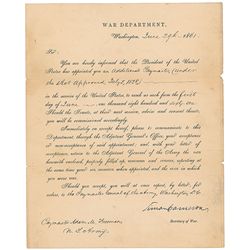 WAR DEPARTMENT,
Washington, June 29th 1861.
Sir:
You are hereby informed that the President of the United
States has appointed you an Additional Paymaster (under
the Act Approved, July 5, 1838)
in the service of the United States, to rank as such from the first
day of June one thousand eight hundred and sixty one
Should the Senate, at their next session, advise and consent thereto,
you will be commissioned accordingly.
Immediately on receipt hereof, please to communicate to this
Department, through the Adjutant General's Office, your acceptance
or non-acceptance of said appointment; and, with your letter of
acceptance, return to the Adjutant General of the Army the oath
herewith enclosed, properly filled up, subscribed and attested, reporting at the
same time your age, residence, when appointed, and the State in which
you were born.
Should you accept, you will at once report, by letter, for
orders, to the Paymaster General of the Army, Washington
Simon Cameron
Secretary of War.
Paymaster
U. S. Army.